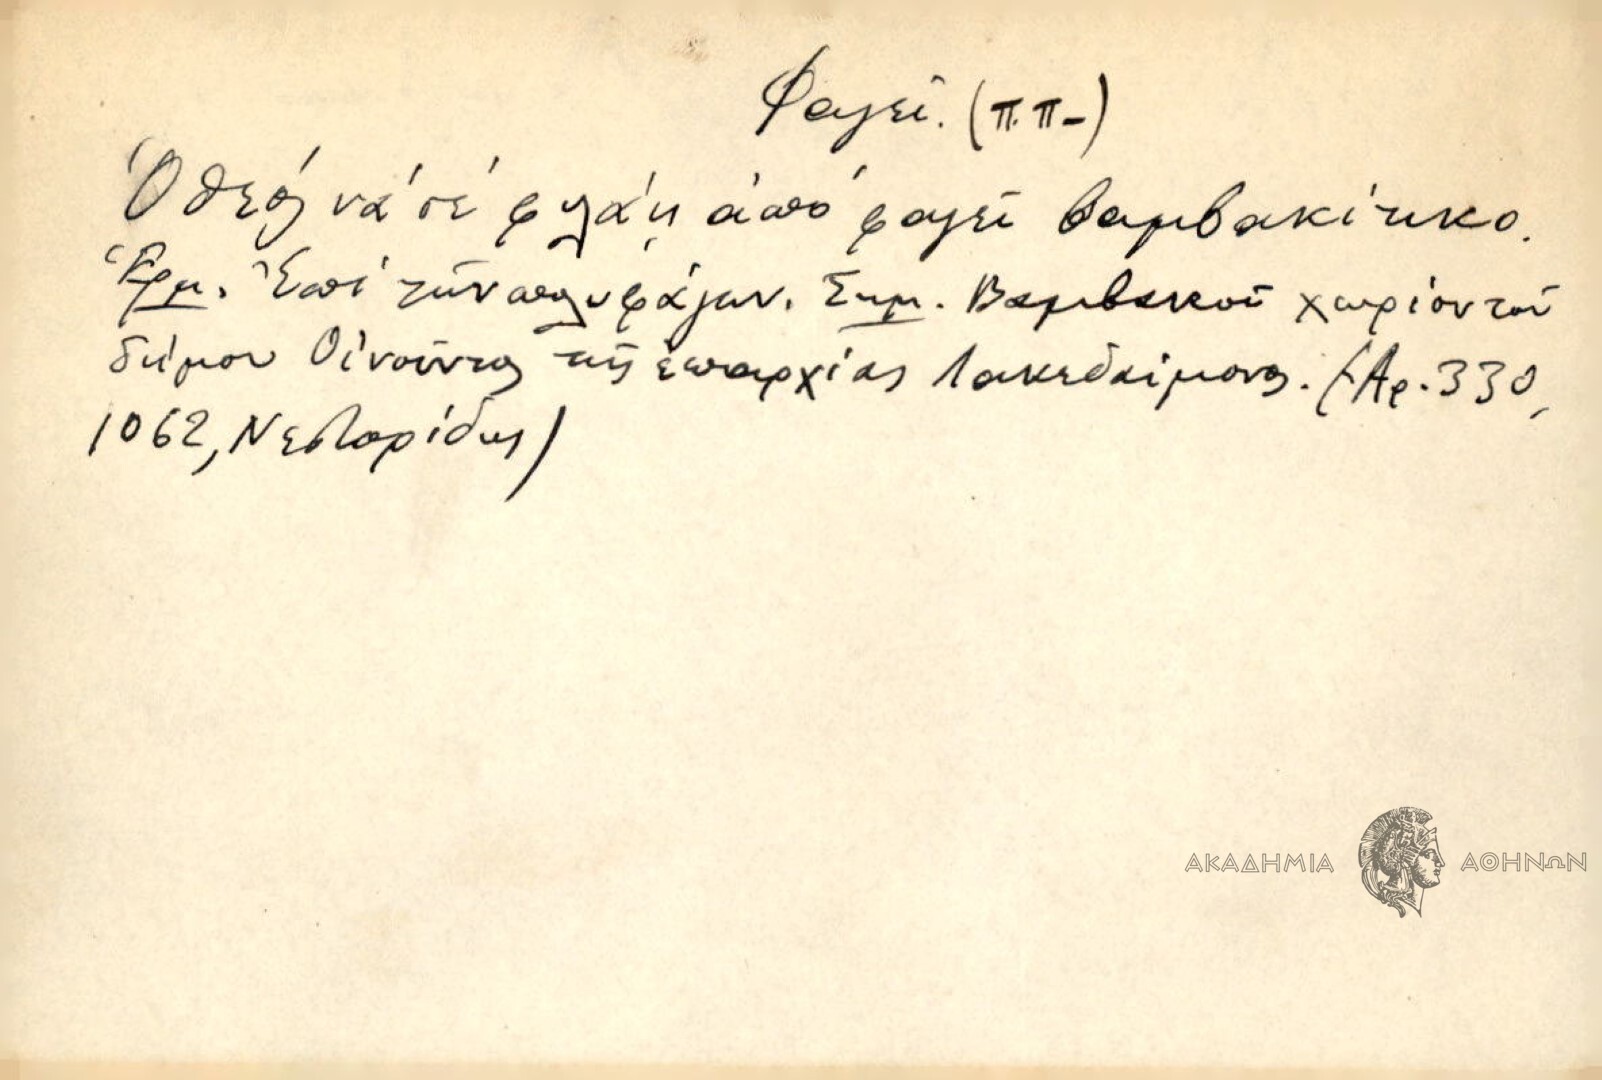 Φαγεῖ. (π.π-)
Ὁ θεός νά σέ φυλάῃ ἀπό φαγεῖ βαμβακίτικο.
Ἑρμ. Ἐπί τῶν πολυφάγων. Σημ. Βαμβακοῦ χωρίον τοῦ
δήμου Οἰνοῦντος τῆς ἐπαρχίας Λακεδαίμονος. (Ἀρ. 330,
1062, Νεστορίδης)
ΑΚΑΔΗΜΙΑ ΑΘΗΝΩΝ